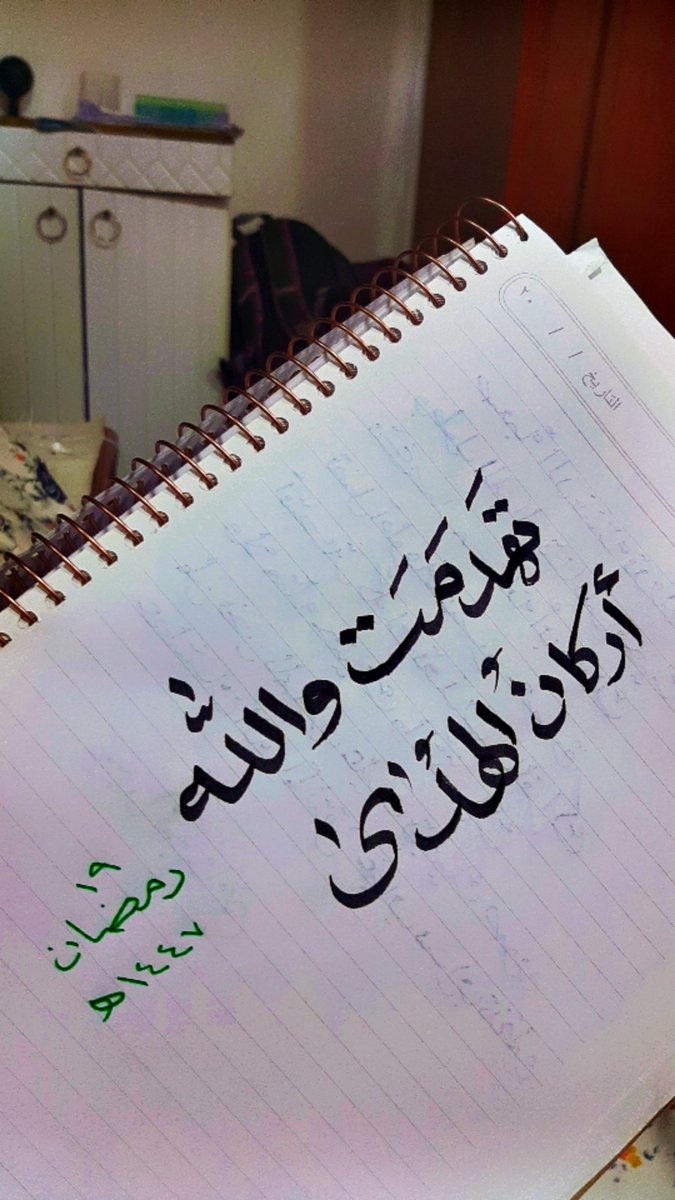 التاريخ / / ٢٠
تهَدَمَت والله
أركان ألهدىٰ
١٩
رمضان
١٤٤٧هـ